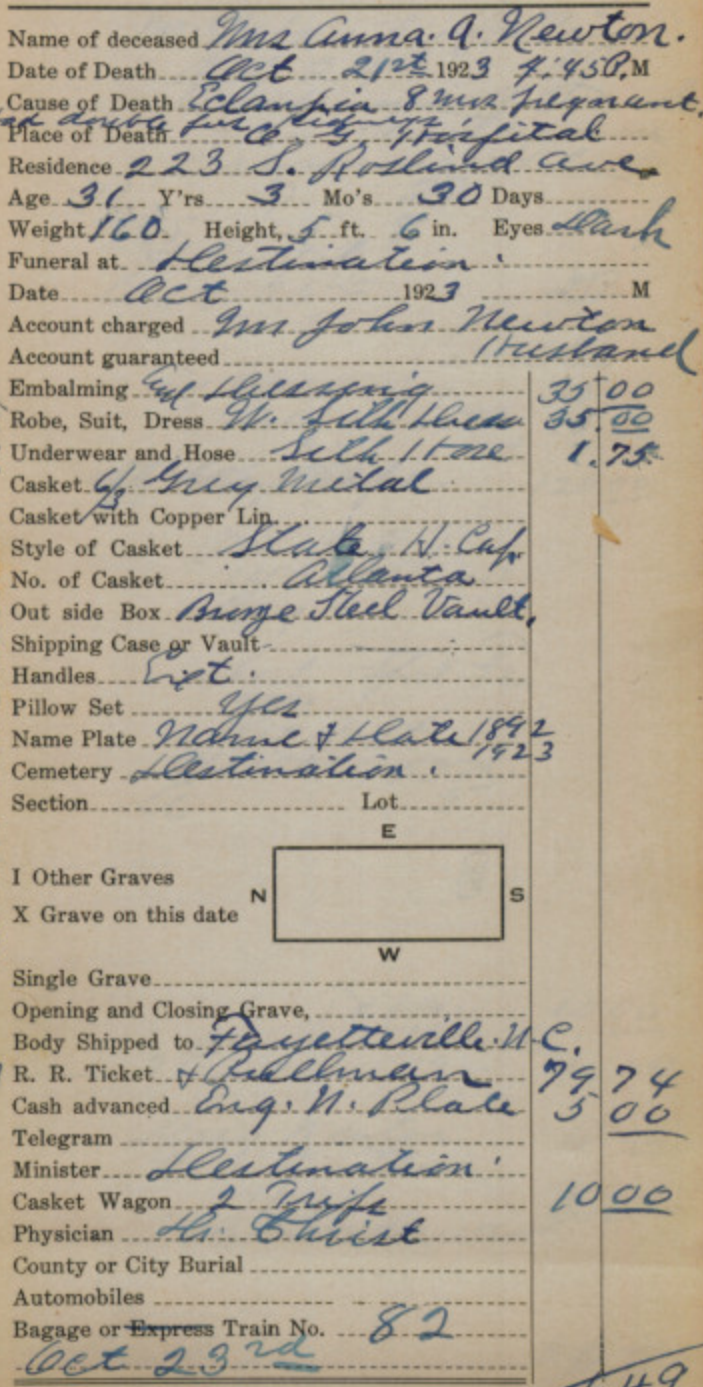 Name of deceased Mrs Anna. A. Newton.
Date of Death Oct 21st 1923 4:45 P.M
Cause of Death Eclampsia 8 mos pregnant.
Place of Death O. G. Hospital
Residence 223 S. Roslind Ave.
Age 31 Y'rs 3 Mo's 30 Days
Weight 160 Height, 5 ft. 6 in. Eyes Dark
Funeral at Destination.
Date Oct 1923 M
Account charged Mr John Newton
Account guaranteed Husband
Embalming and Dressing 35 00
Robe, Suit, Dress W. Silk Dress 35.00
Underwear and Hose Silk Hose 1.75
Casket 6/3 Grey Metal
Casket with Copper Lin.
Style of Casket State H. Cap
No. of Casket Atlanta
Out side Box Bronze Steel Vault.
Shipping Case or Vault
Handles Ext.
Pillow Set yes
Name Plate Name & Date 1892
1923
Cemetery Destination.
Section Lot
E
I Other Graves
N S
X Grave on this date
W
Single Grave
Opening and Closing Grave,
Body Shipped to Fayetteville. N.C.
R. R. Ticket & Pullman 79 74
Cash advanced Eng. N. Plate 5 00
Telegram
Minister Destination.
Casket Wagon 2 Trips 10 00
Physician Dr. Christ
County or City Burial
Automobiles
Bagage or Express Train No. 82
Oct 23rd